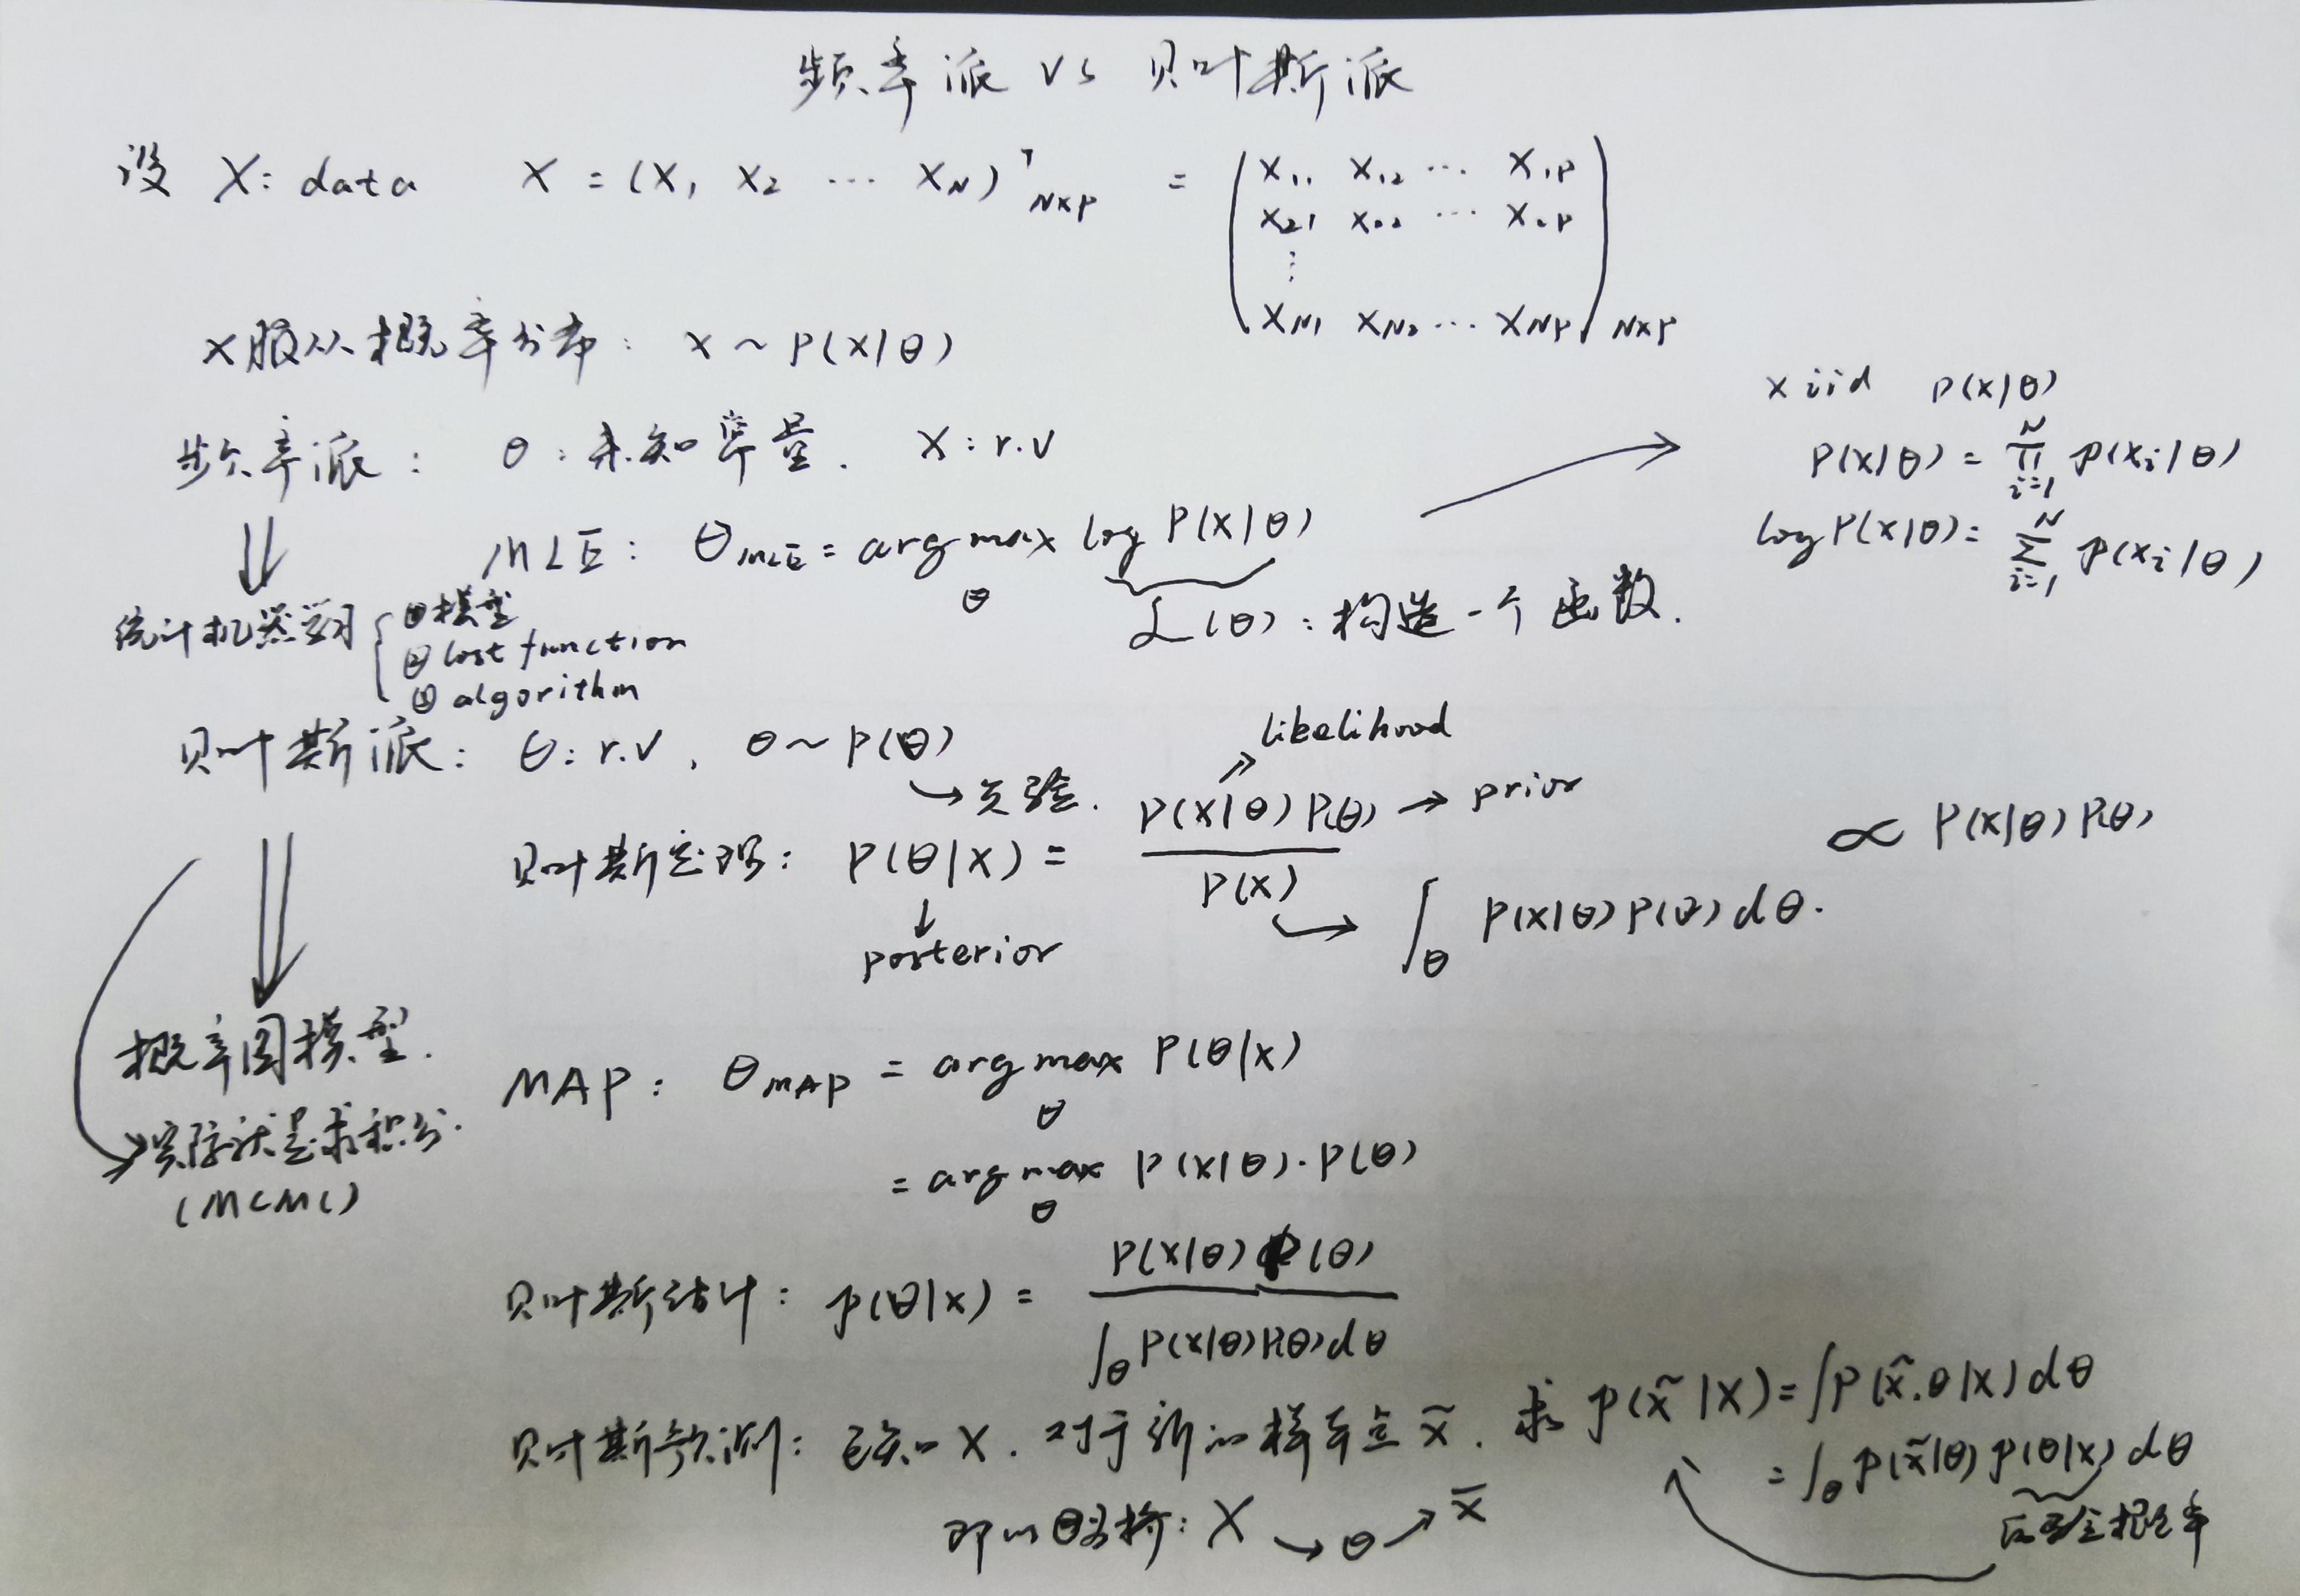 频率派 vs 贝叶斯派
设 X: data X = (x₁ x₂ ⋯ x_N)ᵀ_{N×P} = (x₁₁ x₁₂ ⋯ x₁P
x₂₁ x₂₂ ⋯ x₂P
⋮
x_N1 x_N2 ⋯ x_NP)_{N×P}
x服从概率分布: x ~ P(x|θ)
x iid P(x|θ)
P(X|θ) = ∏_{i=1}^{N} p(xᵢ|θ)
log P(X|θ) = ∑_{i=1}^{N} p(xᵢ|θ)
频率派: θ: 未知常量. X: r.v
MLE: θ_MLE = arg max_θ log P(X|θ)
L(θ): 构造一个函数.
统计机器学习 { ①模型
② lost function
③ algorithm
贝叶斯派: θ: r.v, θ ~ P(θ)
→ 先验.
likelihood
贝叶斯定理: P(θ|X) = P(X|θ) P(θ) / P(X) ∝ P(X|θ) P(θ)
→ prior
↓ posterior
→ ∫_θ P(X|θ) P(θ) dθ.
概率图模型.
实际就是求积分.
(MCMC)
MAP: θ_MAP = arg max_θ P(θ|X)
= arg max_θ P(X|θ)·P(θ)
贝叶斯估计: p(θ|X) = P(X|θ) P(θ) / ∫_θ P(X|θ) P(θ) dθ
贝叶斯预测: 已知X. 对于新的样本点 x̃. 求 p(x̃|X) = ∫P(x̃.θ|X) dθ
= ∫_θ p(x̃|θ) p(θ|X) dθ
后验概率
即以θ为桥: X → θ → x̃